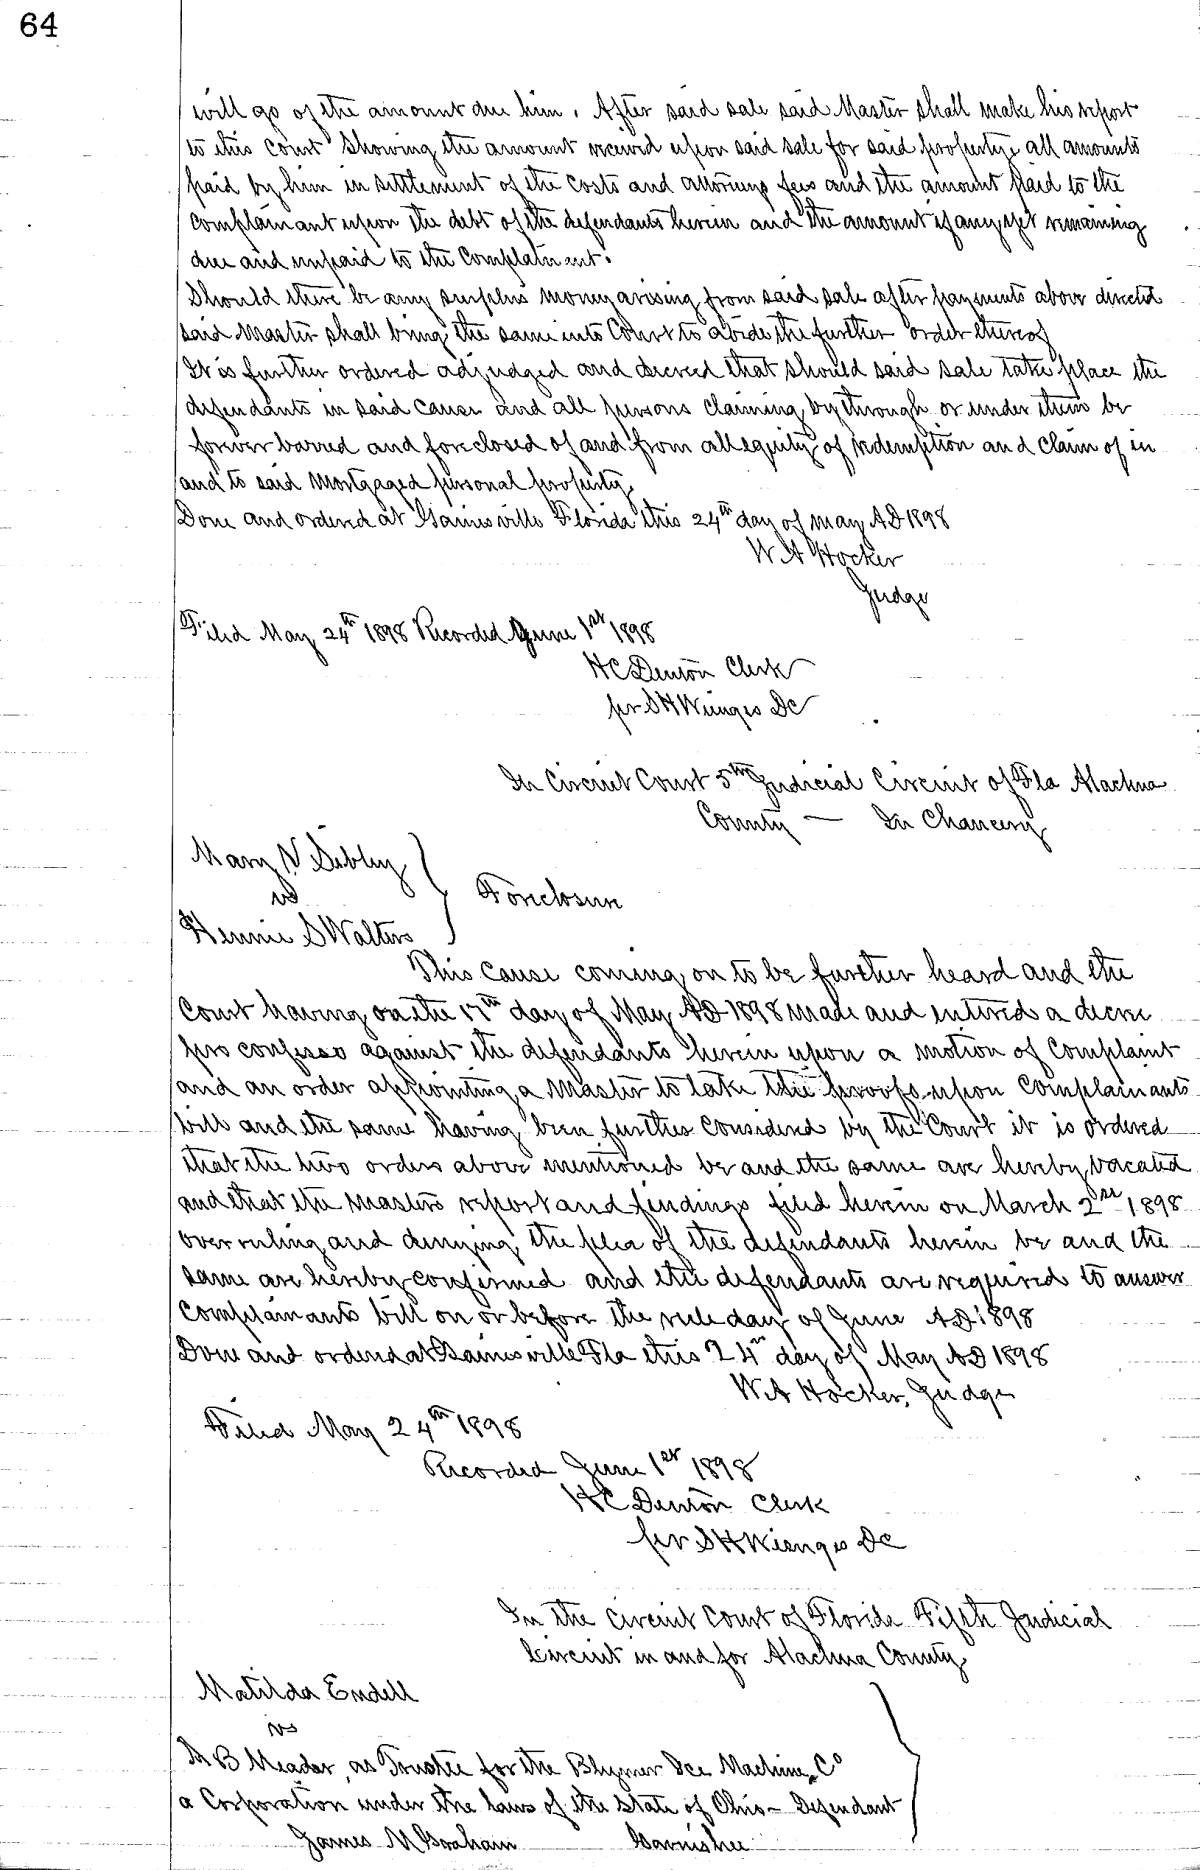 64
will go of the amount due him. After said sale said Master shall make his report
to this Court showing the amount received upon said sale for said property, all amounts
paid by him in settlement of the costs and attorneys fees and the amount paid to the
Complainant upon the debt of the defendants herein and the amount if any yet remaining
due and unpaid to the Complainant.
Should there be any surplus money arising from said sale after payments above directed
said Master shall bring the same into Court to abide the further order thereof
It is further ordered adjudged and decreed that should said sale take place the
defendants in said cause and all persons claiming by through or under them be
forever barred and foreclosed of and from all equity of redemption and claim of in
and to said Mortgaged personal property.
Done and ordered at Gainesville Florida this 24th day of May AD 1898
W A Hocker
Judge
Filed May 24th 1898 Recorded June 1st 1898
H C Denton Clerk
per S H Wienges DC
In Circuit Court 5th Judicial Circuit of Fla Alachua
County — In Chancery
Mary N Sibley
vs
Foreclosure
Hennie S Walters
This cause coming on to be further heard and the
Court having on the 17th day of May AD 1898 made and entered a decree
pro confesso against the defendants herein upon a motion of Complaint
and an order appointing a Master to take the proofs upon Complainants
bill and the same having been further considered by the Court it is ordered
that the two orders above mentioned be and the same are hereby vacated
and that the Masters report and findings filed herein on March 2nd 1898
overruling and denying the plea of the defendants herein be and the
same are hereby confirmed and the defendants are required to answer
Complainants bill on or before the rule day of June AD 1898
Done and ordered at Gainesville Fla this 24th day of May AD 1898
W A Hocker, Judge
Filed May 24th 1898
Recorded June 1st 1898
H C Denton Clerk
per S H Wienges DC
In the Circuit Court of Florida Fifth Judicial
Circuit in and for Alachua County
Matilda Endell
vs
B Meador, as Trustee for the Blymer Ice Machine Co
a Corporation under the laws of the State of Ohio - Defendant
James M Graham Garnishee